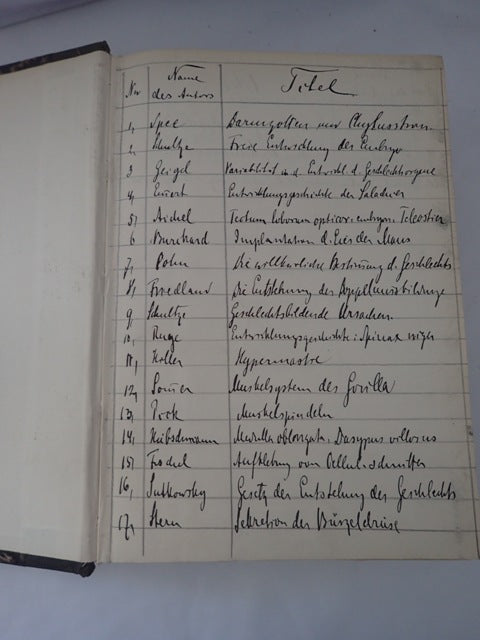 Nr Name des Autors Titel
1, Spee Darmzotten und
2, Schultze Freie Entwicklung des Embryo
3 Geigel Variabilität i. d. Entwickl. d. Geschlechtsorgane
4, Entwicklungsgeschichte der
5, Aichel Tectum loborum opticor. embryon. Teleostier
6 Burckhard Implantation d. Eies der Maus
7, Cohn Die willkürliche Bestimmung d. Geschlechts
8, Friedland Die Entstehung der Doppelmissbildunge
9, Schultze Geschlechtsbildende Ursachen
10, Ruge Entwicklungsgeschichte: Spinax niger
11, Hypermastie
12, Sommer Muskelsystem des Gorilla
13, Muskelspindeln
14, Medulla oblongata, Dasypus villosus
15, Aufklebung von
16, Sutkowsky Gesetz der Entstehung des Geschlechts
17, Stern Sekretion der Bürzeldrüse